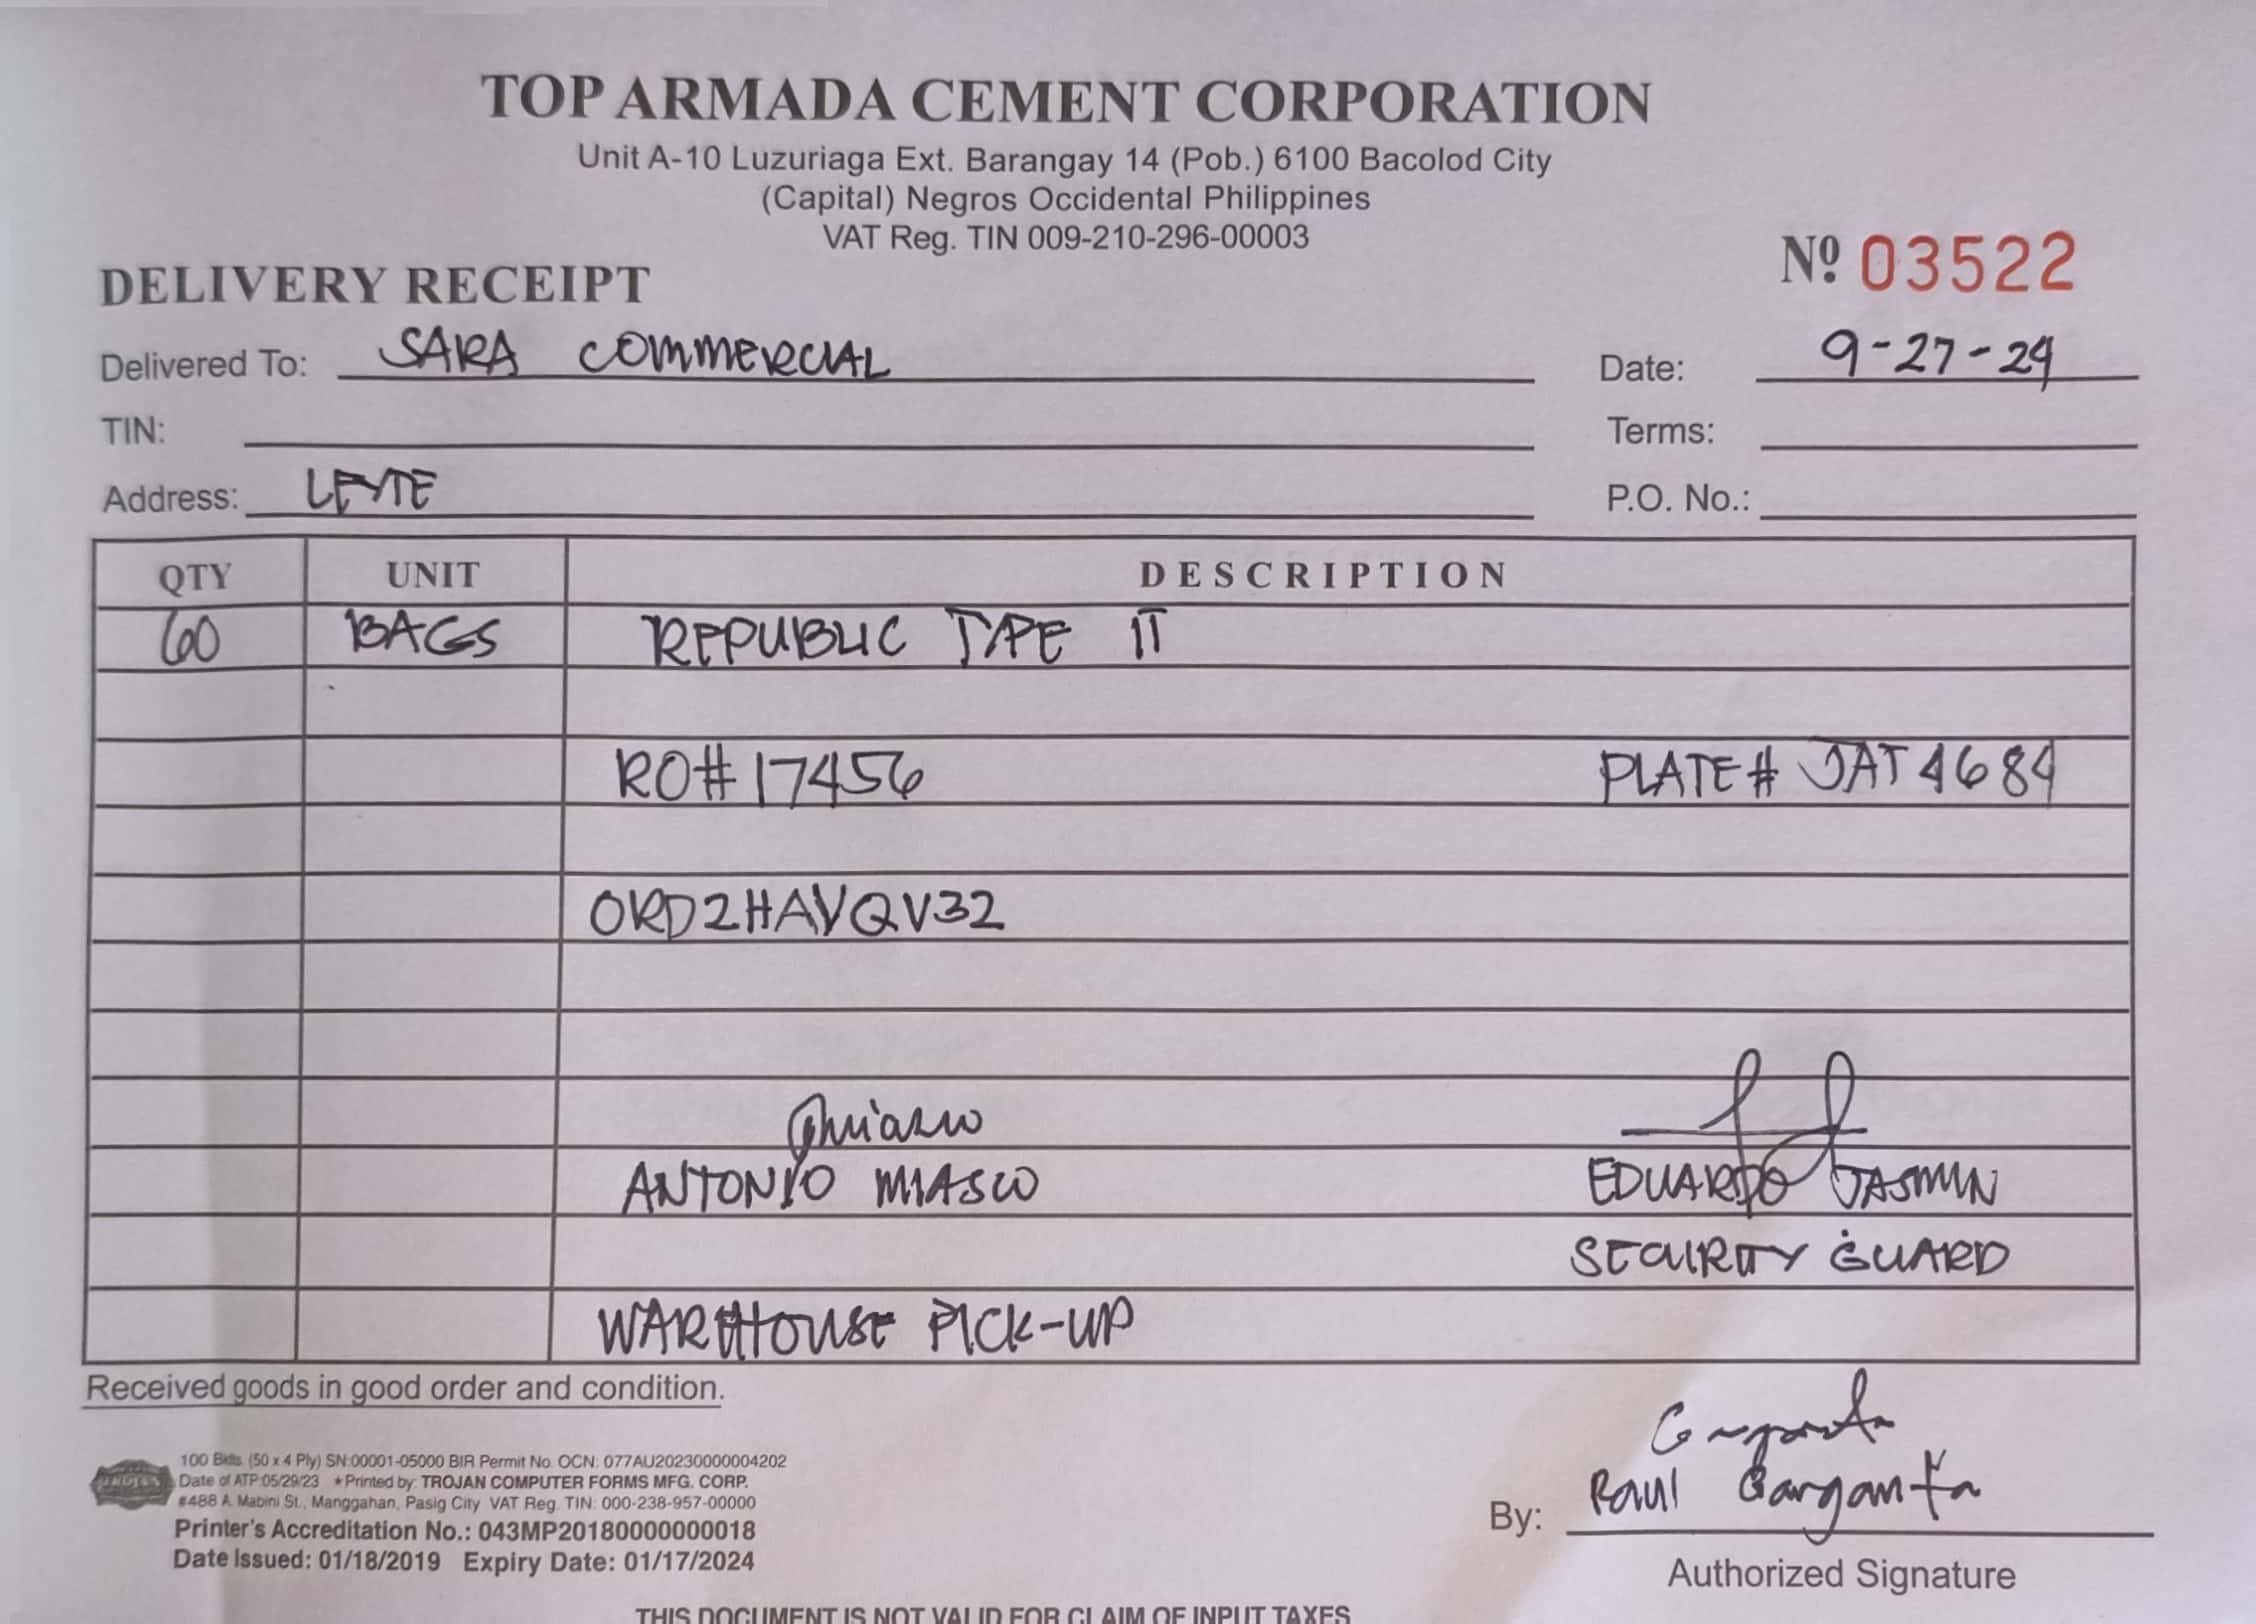 TOP ARMADA CEMENT CORPORATION
Unit A-10 Luzuriaga Ext. Barangay 14 (Pob.) 6100 Bacolod City
(Capital) Negros Occidental Philippines
VAT Reg. TIN 009-210-296-00003
Nº 03522
DELIVERY RECEIPT
Delivered To: SARA COMMERCIAL Date: 9-27-24
TIN: Terms:
Address: LEYTE P.O. No.:
QTY UNIT DESCRIPTION
60 BAGS REPUBLIC TYPE 1T
RO# 17456 PLATE# JAT 4684
ORD2HAVQV32
ANTONIO MIASCO EDUARDO JASMIN
SECURITY GUARD
WAREHOUSE PICK-UP
Received goods in good order and condition.
100 Bklts. (50 x 4 Ply) SN:00001-05000 BIR Permit No. OCN: 077AU20230000004202
Date of ATP:05/29/23 ★Printed by: TROJAN COMPUTER FORMS MFG. CORP.
#488 A. Mabini St., Manggahan, Pasig City VAT Reg. TIN: 000-238-957-00000
Printer's Accreditation No.: 043MP20180000000018
Date Issued: 01/18/2019 Expiry Date: 01/17/2024
By: Raul Garganta
Authorized Signature
THIS DOCUMENT IS NOT VALID FOR CLAIM OF INPUT TAXES